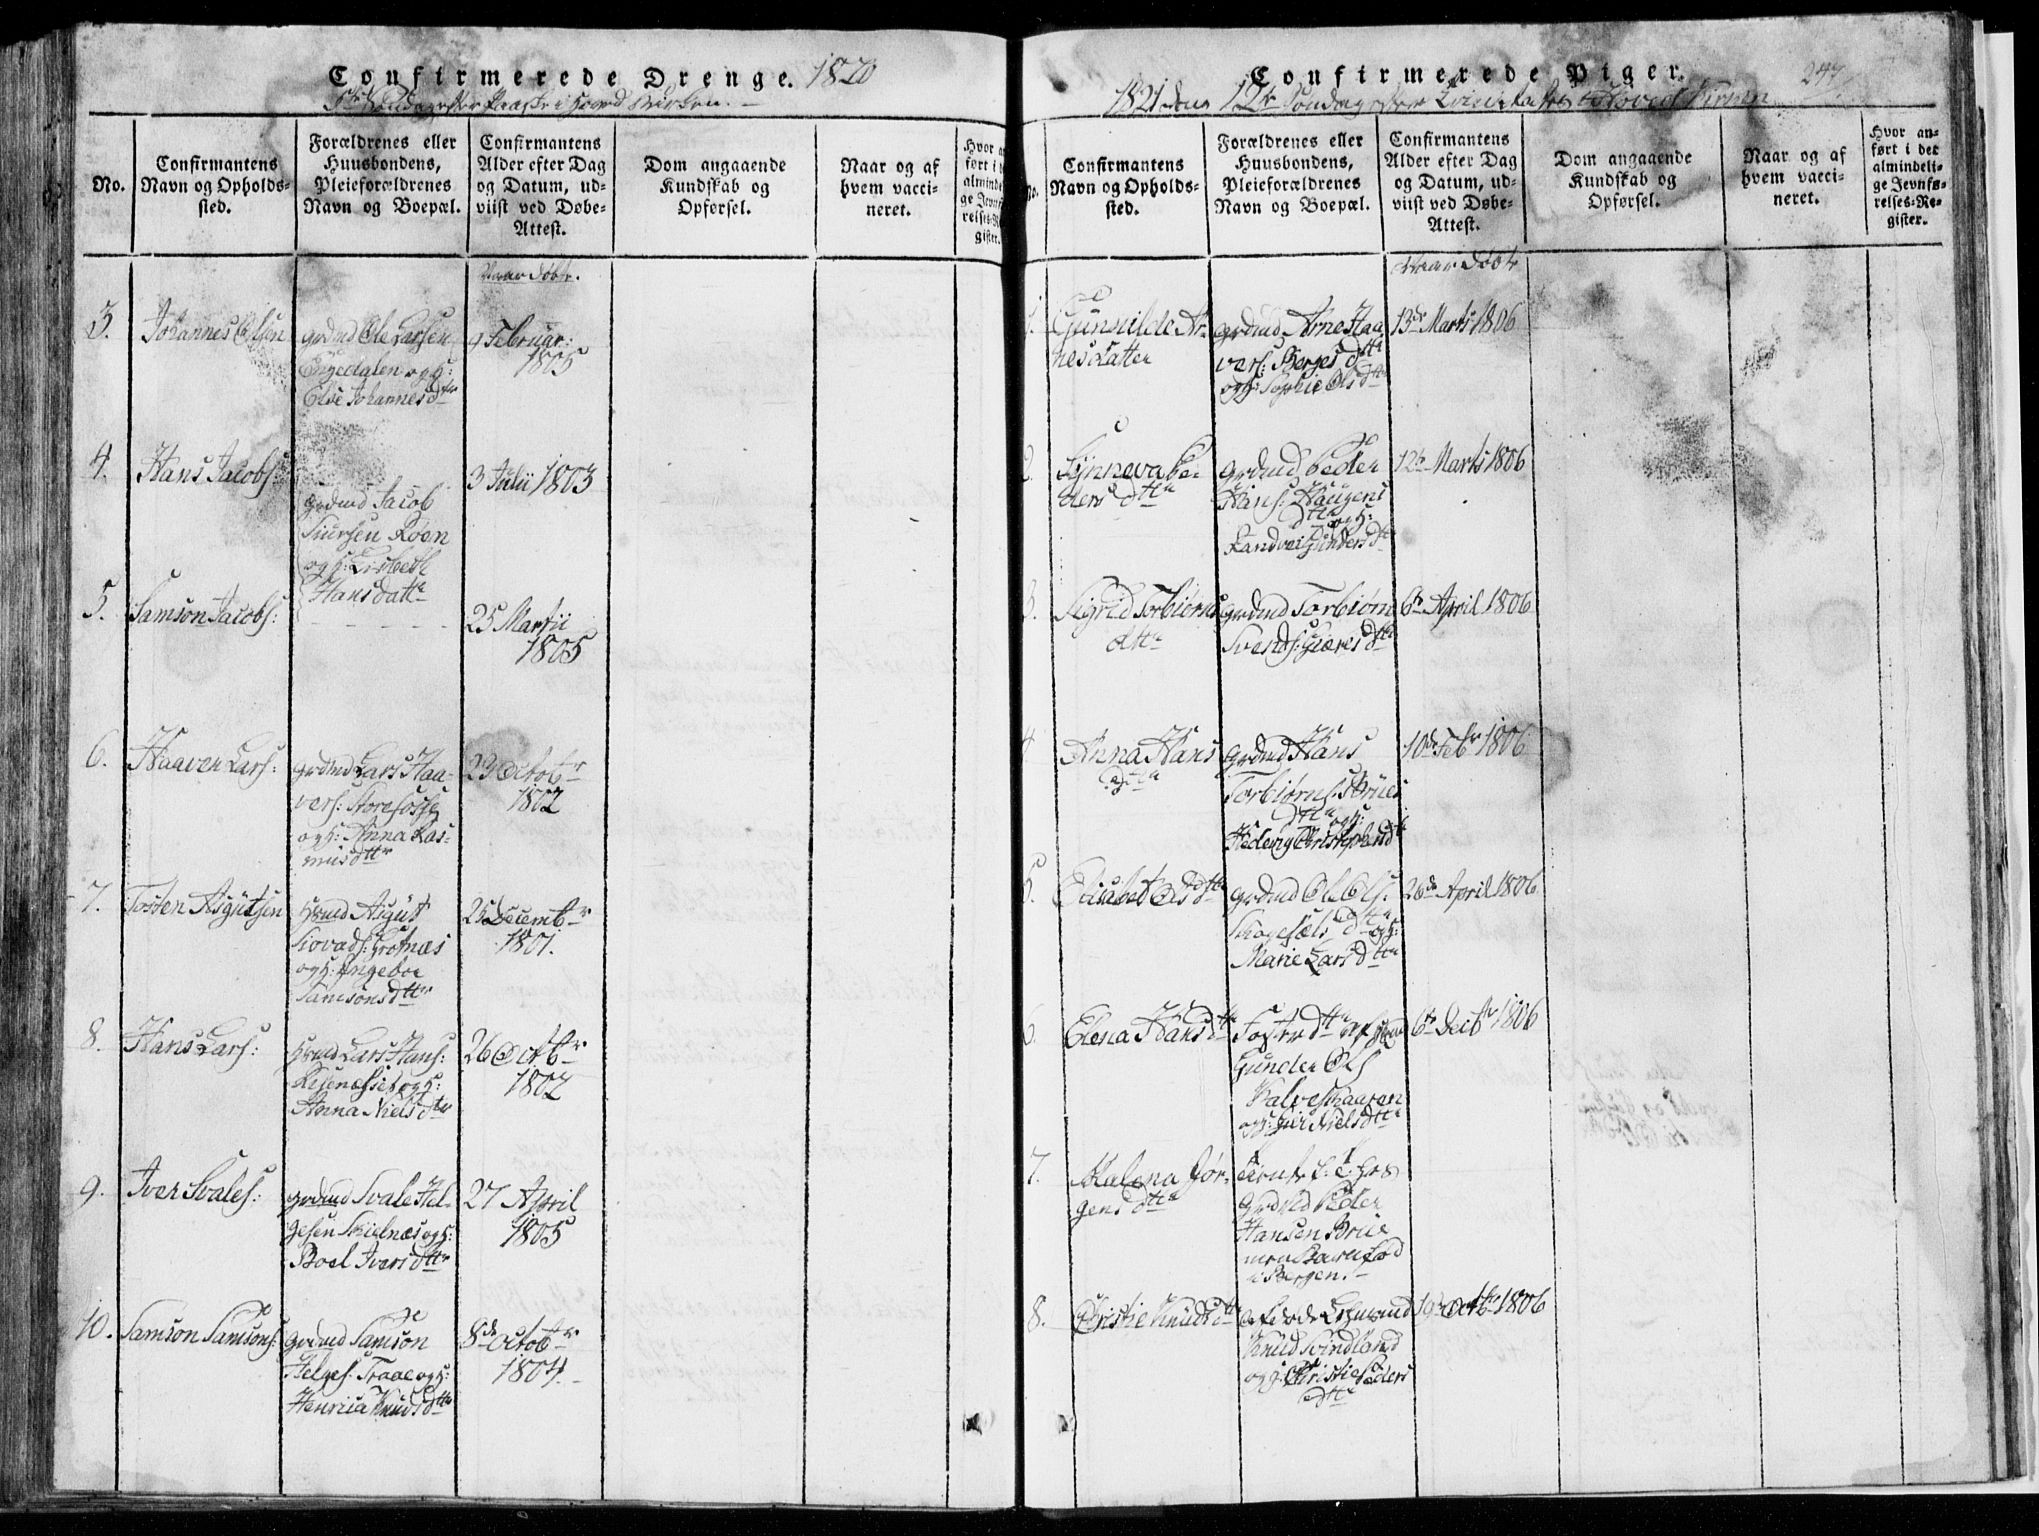 Confirmerede Drenge. 1820
Søndag efter Paaske i Hoved Kirken.
No.
Confirmantens
Navn og Opholds-
sted.
Forældrenes eller
Huusbondens,
Pleieforældrenes
Navn og Boepæl.
Confirmantens
Alder efter Dag
og Datum, ud-
viist ved Døbe-
Attest.
Dom angaaende
Kundskab og
Opførsel.
Naar og af
hvem vacci-
neret.
Hvor an
ført i de
alminde
ge Jevnf
relses-R
gister.
Naar døbt.
3.
Johannes Olsen
grdmd Ole Larsen
Bygedalen og H:
Else Johannesdtr
9 Februar:
1805
4.
Hans Jacobs:
grdmd Jacob
Siursen Røen
og H: Lisbeth
Hansdatr
3 Julii 1803
5.
Samson Jacobs:
25 Martii
1805
6.
Haaver Lars:
grdmd Lars Haa-
vers: Storefosse
og H: Anna Ras-
musdttr
23 Octobr
1802
7.
Torsten Asgutsen
Hsmd Asgut
Siovads: Grotnæs
og H: Ingebor
Samsonsdttr
25 Decembr
1801.
8.
Hans Lars:
Hsmd Lars Hans:
og H:
Anna Nielsdtr
26 Octbr
1802
9.
Iver Svales:
grdmd Svale Hel-
gesen Skielnæs og H:
Boel Iversdttr
27 April
1805
10.
Samson Samsons:
grdmd Samson
Helges: Traae og H:
Henrica Knudsdttr
8de Octobr
1804.
Confirmerede Piger. 247
1821 den 12te Søndag efter Trinitatis i Hoved Kirken
No.
Confirmantens
Navn og Opholds-
sted.
Forældrenes eller
Huusbondens,
Pleieforældrenes
Navn og Boepæl.
Confirmantens
Alder efter Dag
og Datum, ud-
viist ved Døbe-
Attest.
Dom angaaende
Kundskab og
Opførsel.
Naar og af
hvem vacci-
neret.
Hvor an-
ført i det
almindeli-
ge Jevnfø-
relses-Re-
gister.
Naar døbt
1.
Gunnilde Ar-
nesdatter
grdmd Arne Haa-
vers: Berges dttr
og H: Sophie Olsdttr
13de Marts 1806
2.
Synneva Pe-
ders dttr
grdmd Peder
Hans: Haugens
dttr og H:
Randvei Gundersdtr
12te Marts 1806
3.
Sigrid Torbiørns
dttr
grdmd Torbiørn
Svends: Giæres dttr
6te April 1806
4
Anna Hans
dttr
grdmd Hans
Torbiørns: Brues
dttr og H:
Hedevig Christophersdtr
10de Febr 1806
5.
Elisabet Olsdttr
grdmd Ole Ols:
Skogesæls dttr og H:
Marie Larsdttr
20de April 1806
6.
Elena Hansdttr
Fosterdttr af Hsmd
Gunder Ols
Kalveskaaren
og H: Guri Nielsdttr
6te Decbr 1806
7.
Malena Jør-
gensdttr
hos
Grdmd Peder
Hansen Brue
men Barnefød
i Bergen.
8.
Christie Knudsdttr
afdøde
Knud Svindland
og H: Christie Peders
dttr
19de Octbr 1806